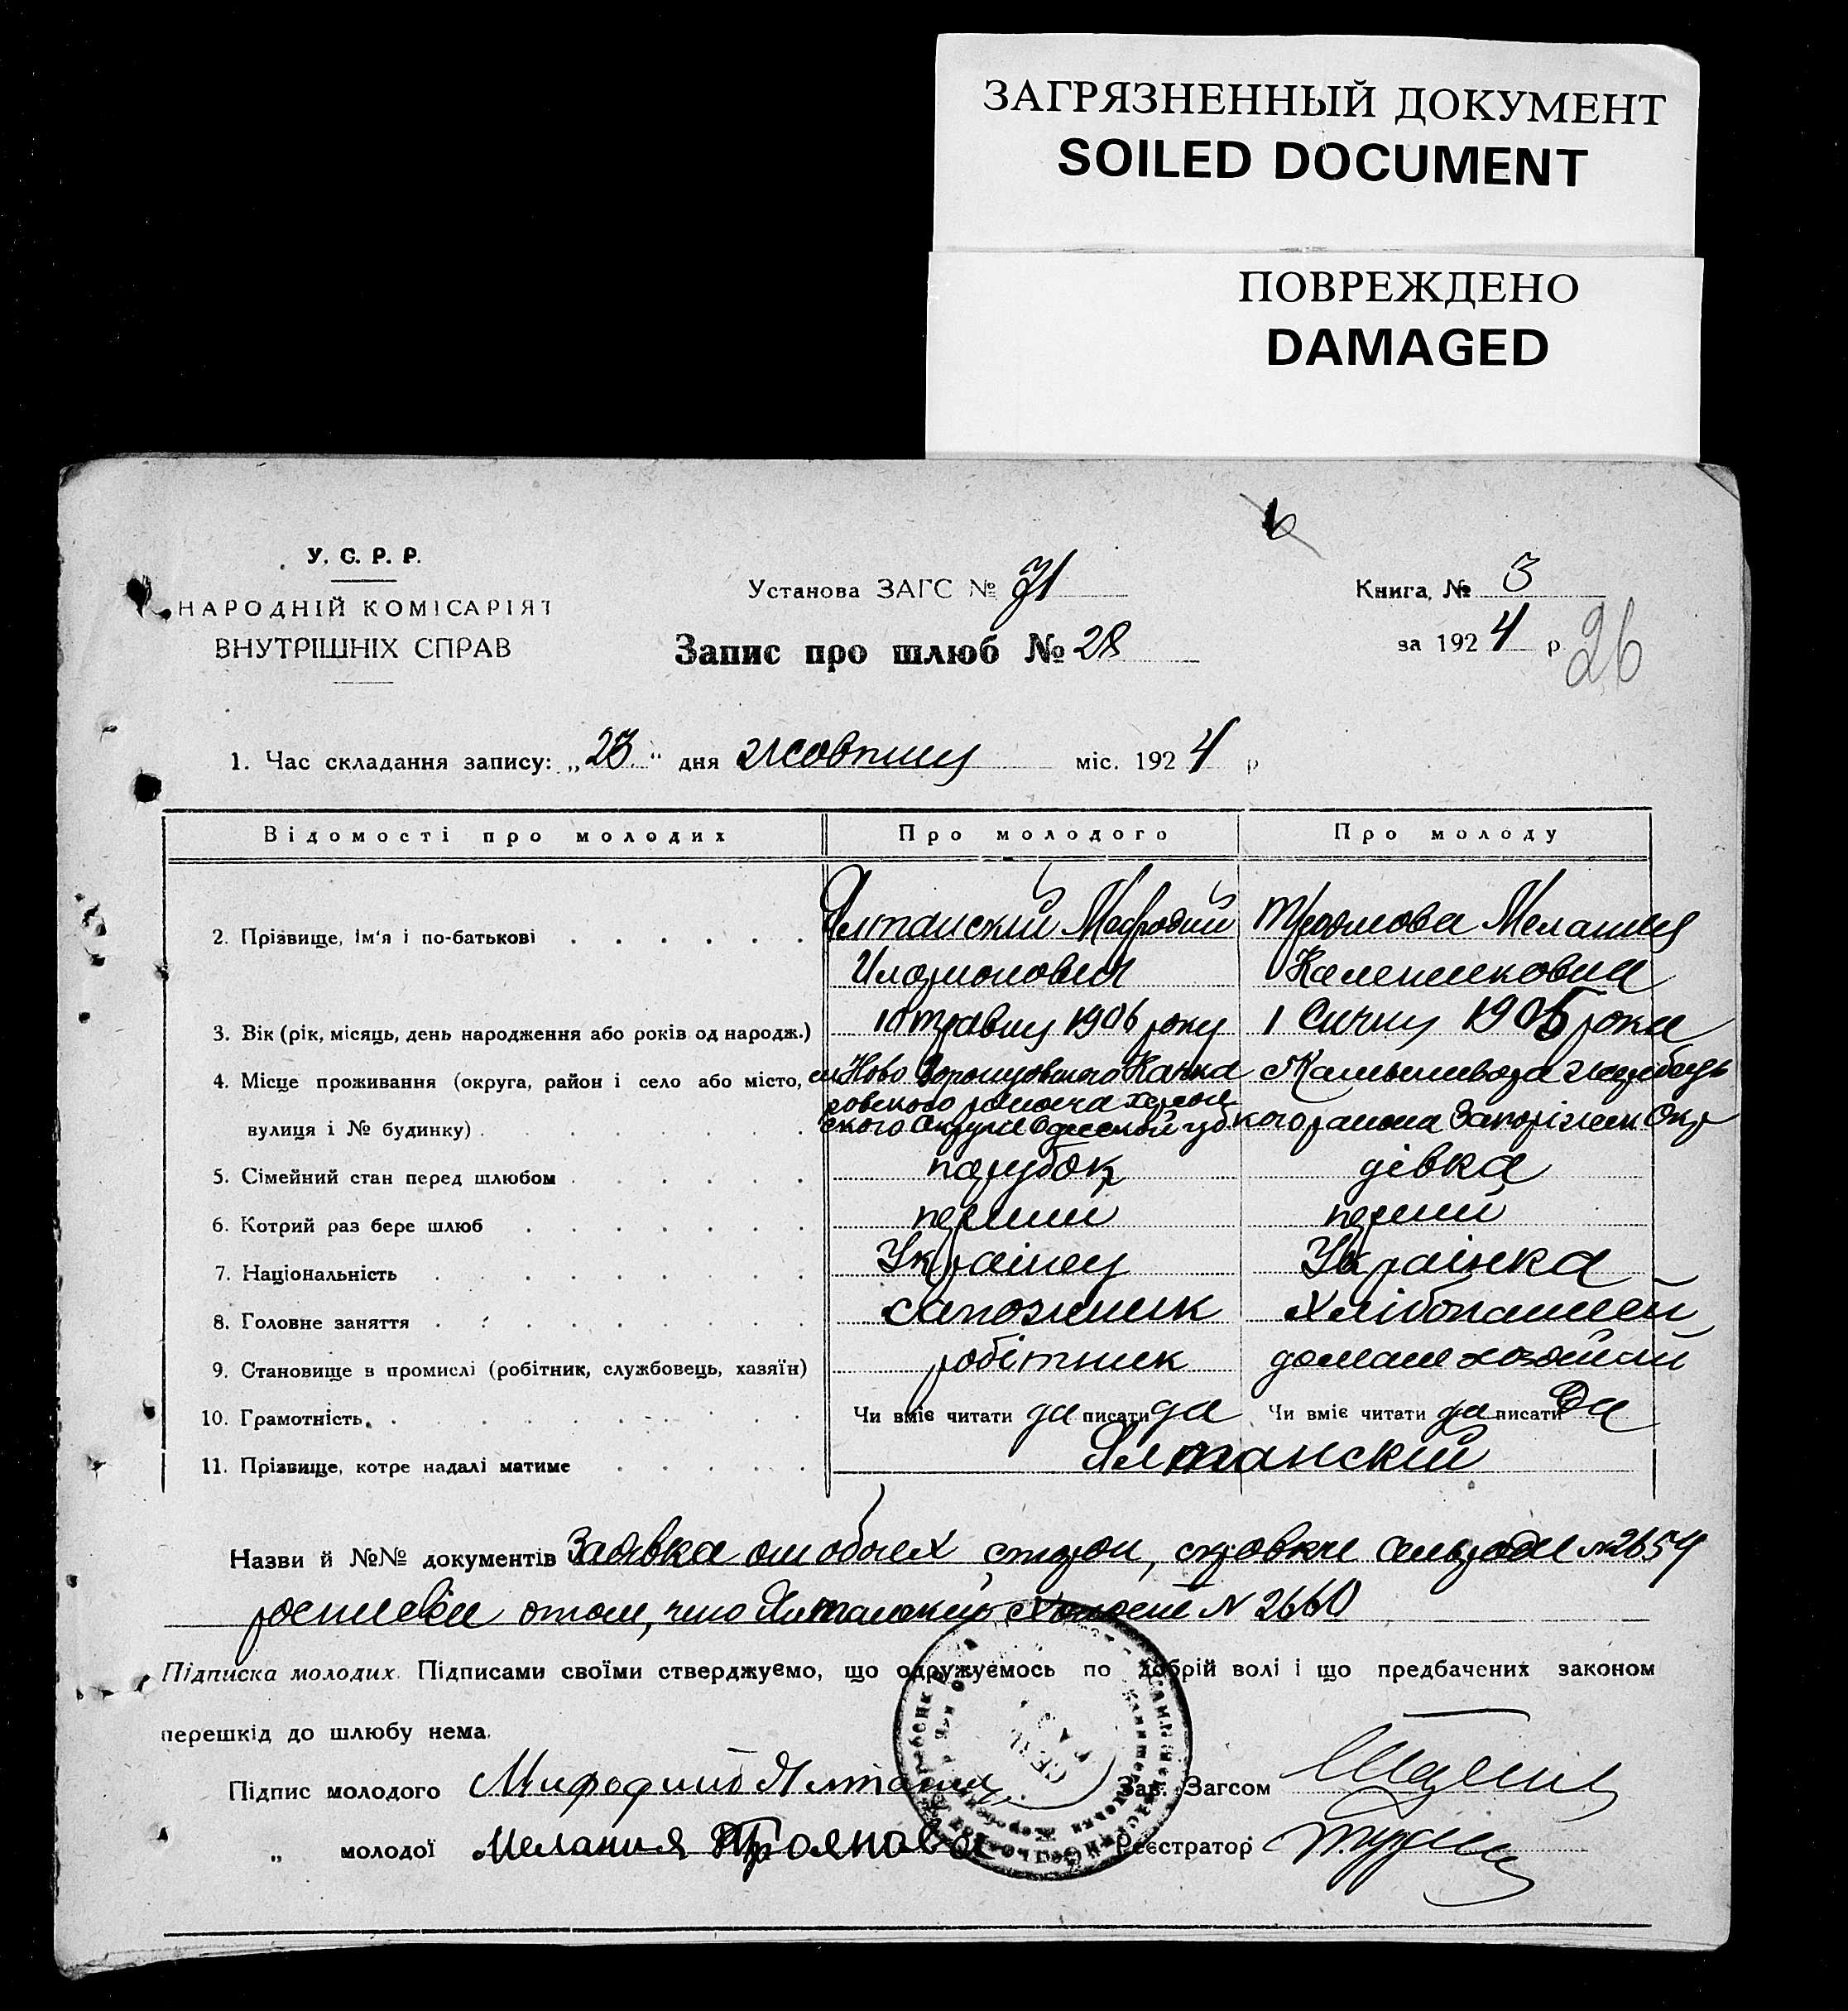 ЗАГРЯЗНЕННЫЙ ДОКУМЕНТ
SOILED DOCUMENT
ПОВРЕЖДЕНО
DAMAGED
У. С. Р. Р.
НАРОДНІЙ КОМІСАРІЯТ
ВНУТРІШНІХ СПРАВ
Установа ЗАГС № 71
Запис про шлюб № 28
Книга, № 3
за 1924 р.
26
1. Час складання запису: „23" дня жовтня міс. 1924 р
Відомості про молодих Про молодого Про молоду
2. Прізвище, ім'я і по-батькові Ялтанский Мефодий Троянова Мелания
Иларионович
3. Вік (рік, місяць, день народження або років од народж.) 10 травня 1906 року 1 Січня 1905 року
4. Місце проживання (округа, район і село або місто, Ново Воронцовского Качка
ровского района Херсон
вулиця і № будинку) ского Округи Одеской губ кого района Запоріжск Окр
5. Сімейний стан перед шлюбом парубок дівка
6. Котрий раз бере шлюб перший перший
7. Національність Українец Українка
8. Головне заняття сапожник
9. Становище в промислі (робітник, службовець, хазяїн) робітник
10. Грамотність. Чи вміє читати да писати да Чи вміє читати да писати Да
11. Прізвище, котре надалі матиме Ялтанский
Назви й №№ документів Заявка от обоех сторон, сельради № 2654
о том, что Ялтанский № 2660
Підписка молодих. Підписами своїми стверджуємо, що одружуємось по добрій волі і що предбачених законом
перешкід до шлюбу нема.
Підпис молодого Мифодий Зав. Загсом
„ молодої Мелания Троянова Реєстратор